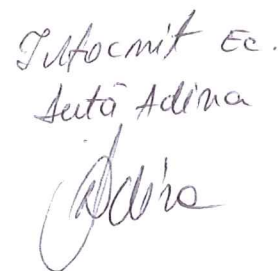 Intocmit Ec.
Lută Adina
Adina